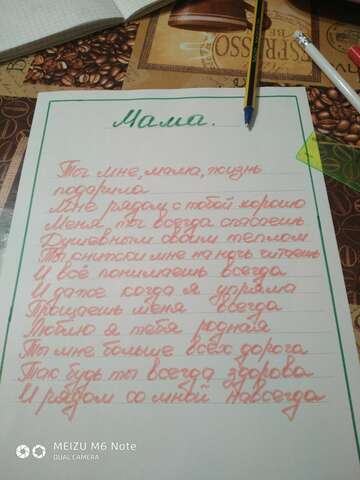 ESPRESSO
Мама.
Ты мне, мама, жизнь
подарила
Мне рядом с тобой хорошо
Меня ты всегда спасаешь
Душевным своим теплом
Ты книжки мне на ночь читаешь
И всё понимаешь всегда
И даже когда я упряма
Прощаешь меня всегда
Люблю я тебя родная
Ты мне больше всех дорога
Так будь ты всегда здорова
И рядом со мной навсегда
MEIZU M6 Note
DUAL CAMERA